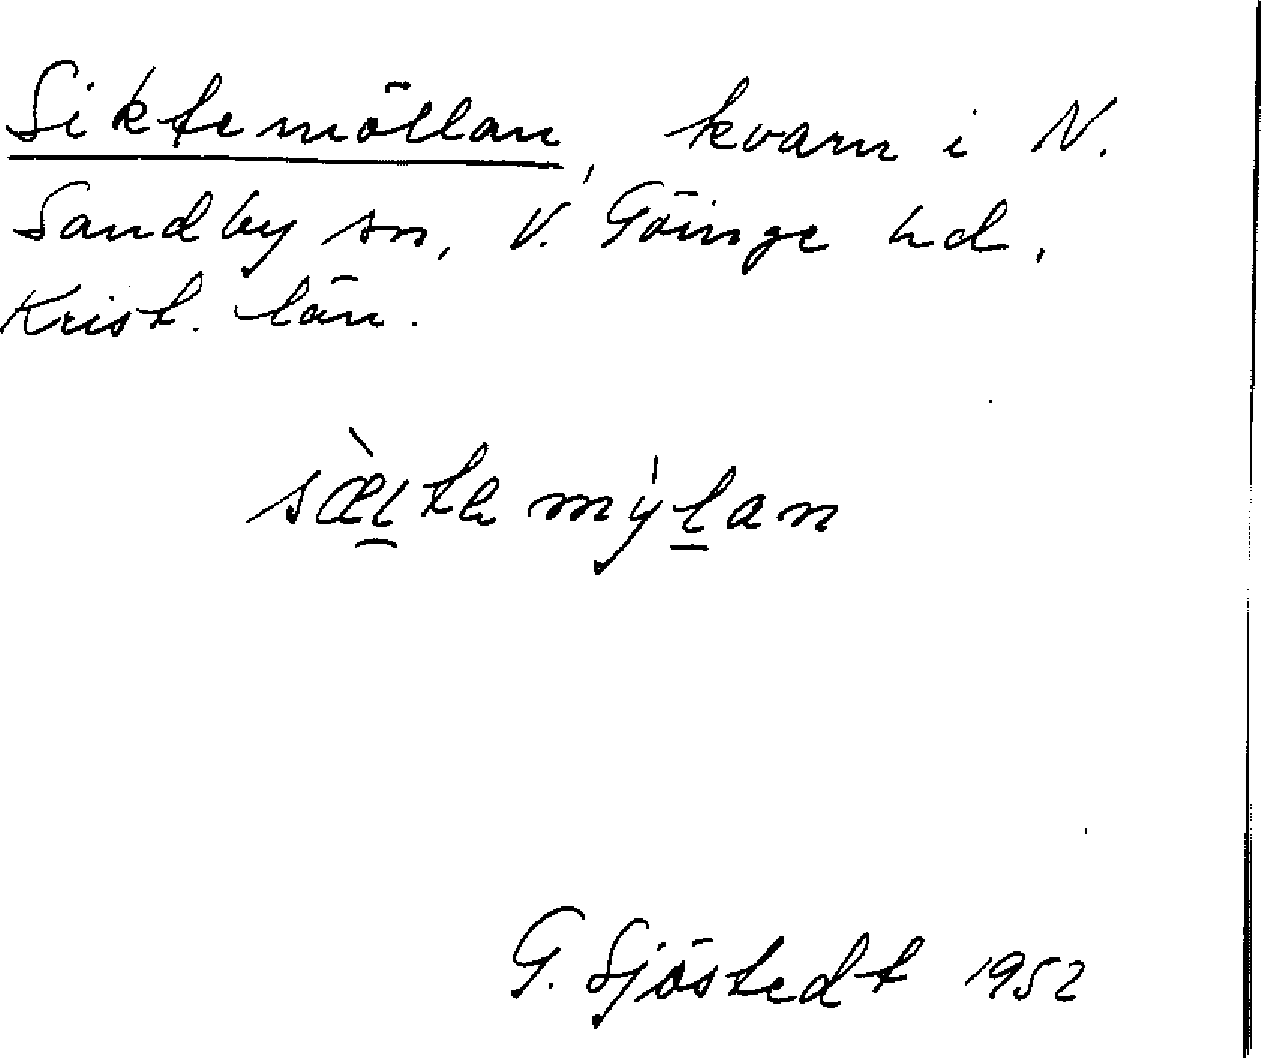 Siktemöllan, kvarn i N.
Sandby sn, V. Göinge hd,
Krist. län.
sæ̀i̯te mýlan
G. Sjöstedt 1952